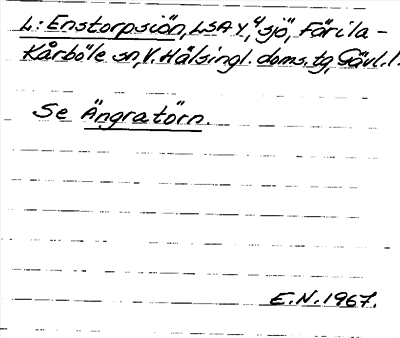 L: Enstorpsjön, LSA Y, "sjö", Färila-
Kårböle sn, V. Hälsingl. doms. tg, Gävl. l.
Se Ängratörn.
E.N. 1967.